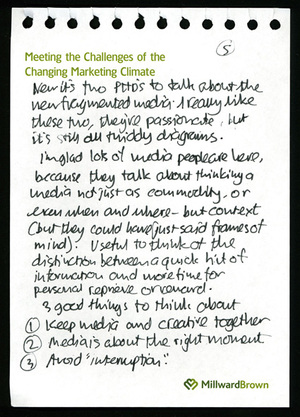 5
Meeting the Challenges of the
Changing Marketing Climate
Now it's two PHD's to talk about the
new fragmented media. I really like
these two, they're passionate, but
it's still all twiddy diagrams.
I'm glad lots of media people are here,
because they talk about thinking a
media not just as commodity, or
even when and where - but context
(but they could have just said frames of
mind). Useful to think of the
distinction between a quick hit of
information and more time for
personal reprieve or reward.
3 good things to think about
1 Keep media and creative together
2 Media is about the right moment
3 Avoid "interruption".
MillwardBrown